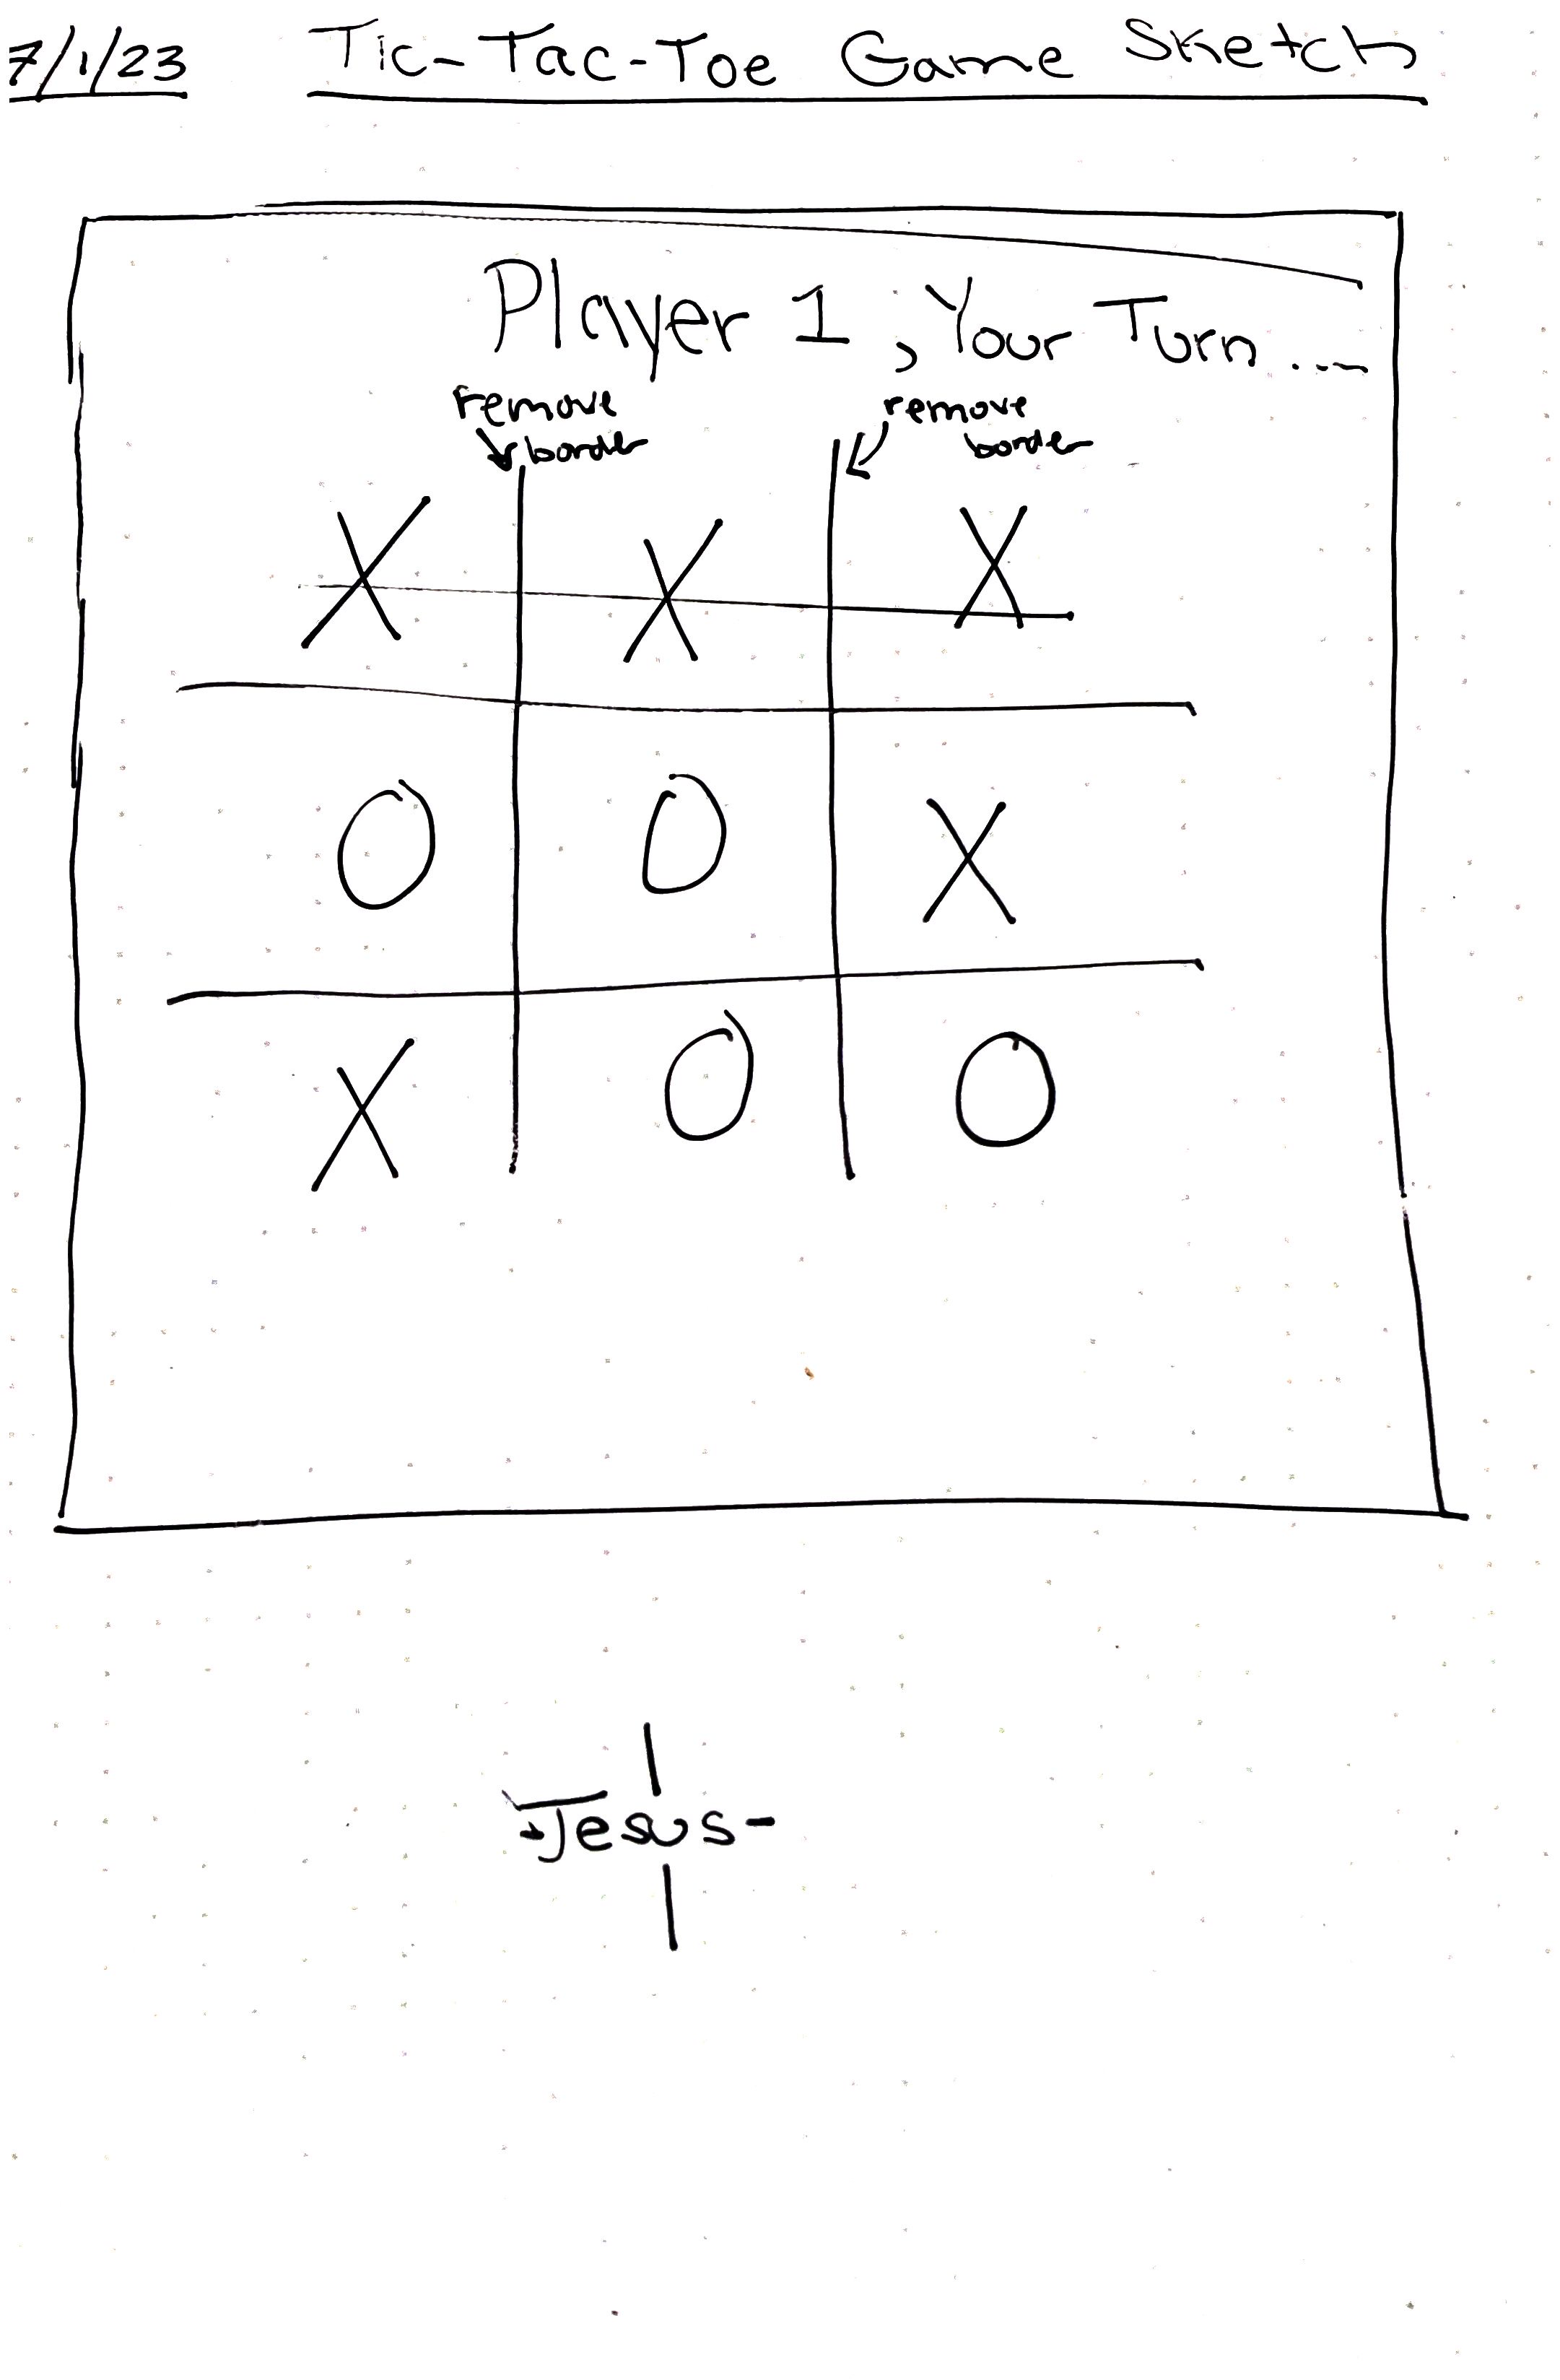 7/1/23 Tic-Tac-Toe Game Sketch
Player 1, Your Turn....
remove border
remove border
X X X
O O X
X O O
Jesus